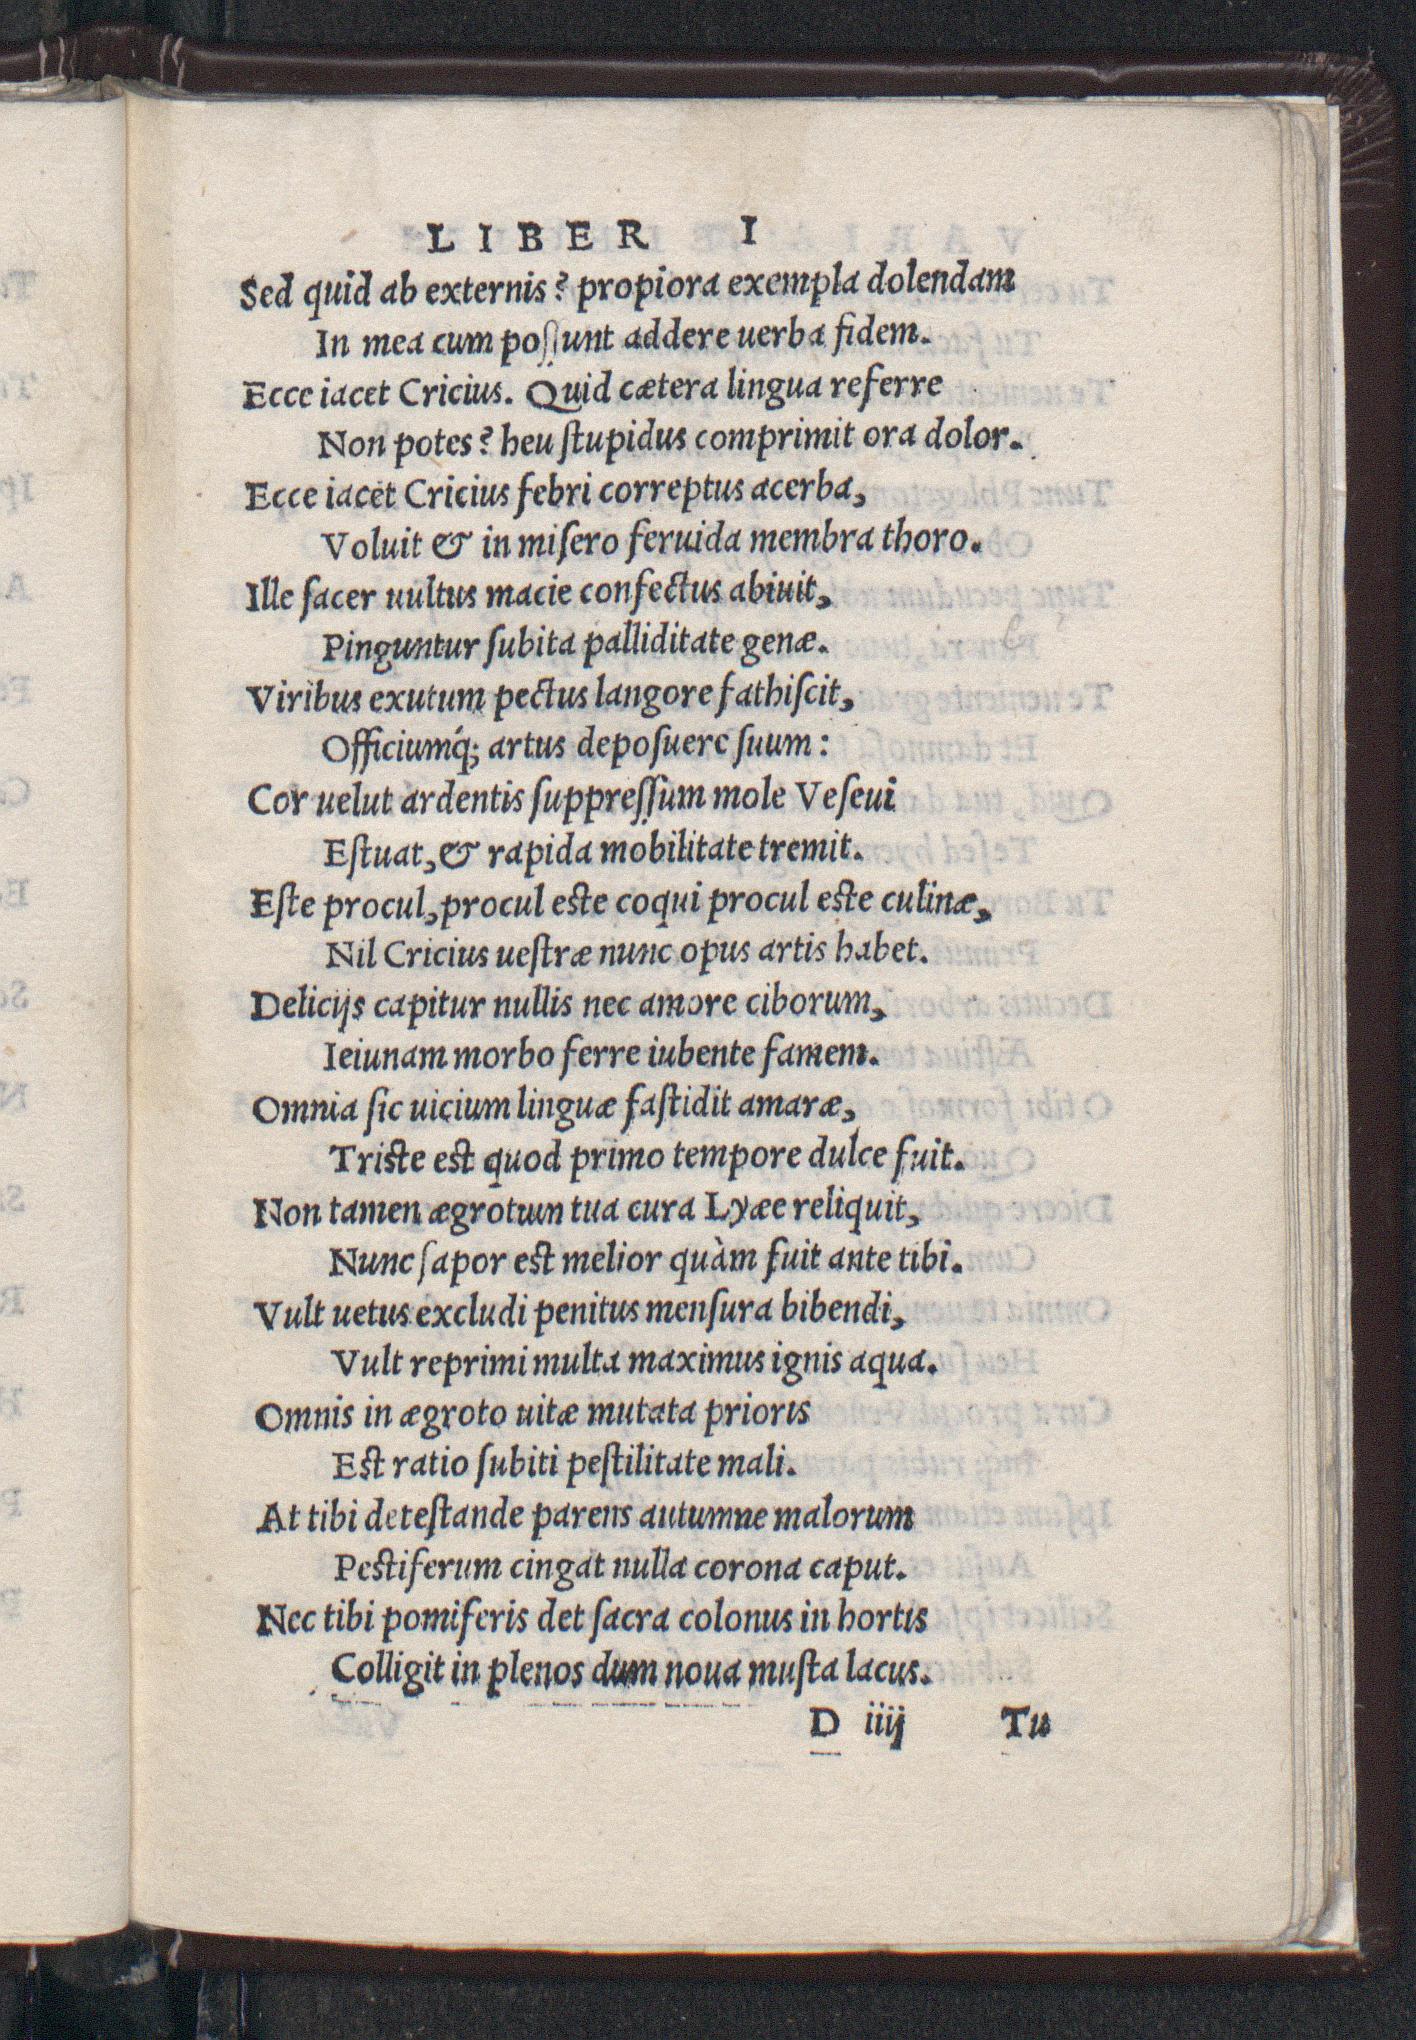 LIBER I
Sed quid ab externis? propiora exempla dolendam
In mea cum poſſunt addere uerba fidem.
Ecce iacet Cricius. Quid cætera lingua referre
Non potes? heu ſtupidus comprimit ora dolor.
Ecce iacet Cricius febri correptus acerba,
Voluit & in miſero feruida membra thoro.
Ille ſacer uultus macie confectus abiuit,
Pinguntur ſubita palliditate genæ.
Viribus exutum pectus langore fathiſcit,
Officiumq́; artus depoſuere ſuum:
Cor uelut ardentis ſuppreſſum mole Veſeui
Eſtuat, & rapida mobilitate tremit.
Eſte procul, procul eſte coqui procul eſte culinæ,
Nil Cricius ueſtræ nunc opus artis habet.
Delicijs capitur nullis nec amore ciborum,
Ieiunam morbo ferre iubente famem.
Omnia ſic uicium linguæ faſtidit amaræ,
Triſte eſt quod primo tempore dulce fuit.
Non tamen ægrotum tua cura Lyæe reliquit,
Nunc ſapor eſt melior quàm fuit ante tibi.
Vult uetus excludi penitus menſura bibendi,
Vult reprimi multa maximus ignis aqua.
Omnis in ægroto uitæ mutata prioris
Eſt ratio ſubiti peſtilitate mali.
At tibi deteſtande parens autumne malorum
Peſtiferum cingat nulla corona caput.
Nec tibi pomiferis det ſacra colonus in hortis
Colligit in plenos dum noua muſta lacus.
D iiij Tu